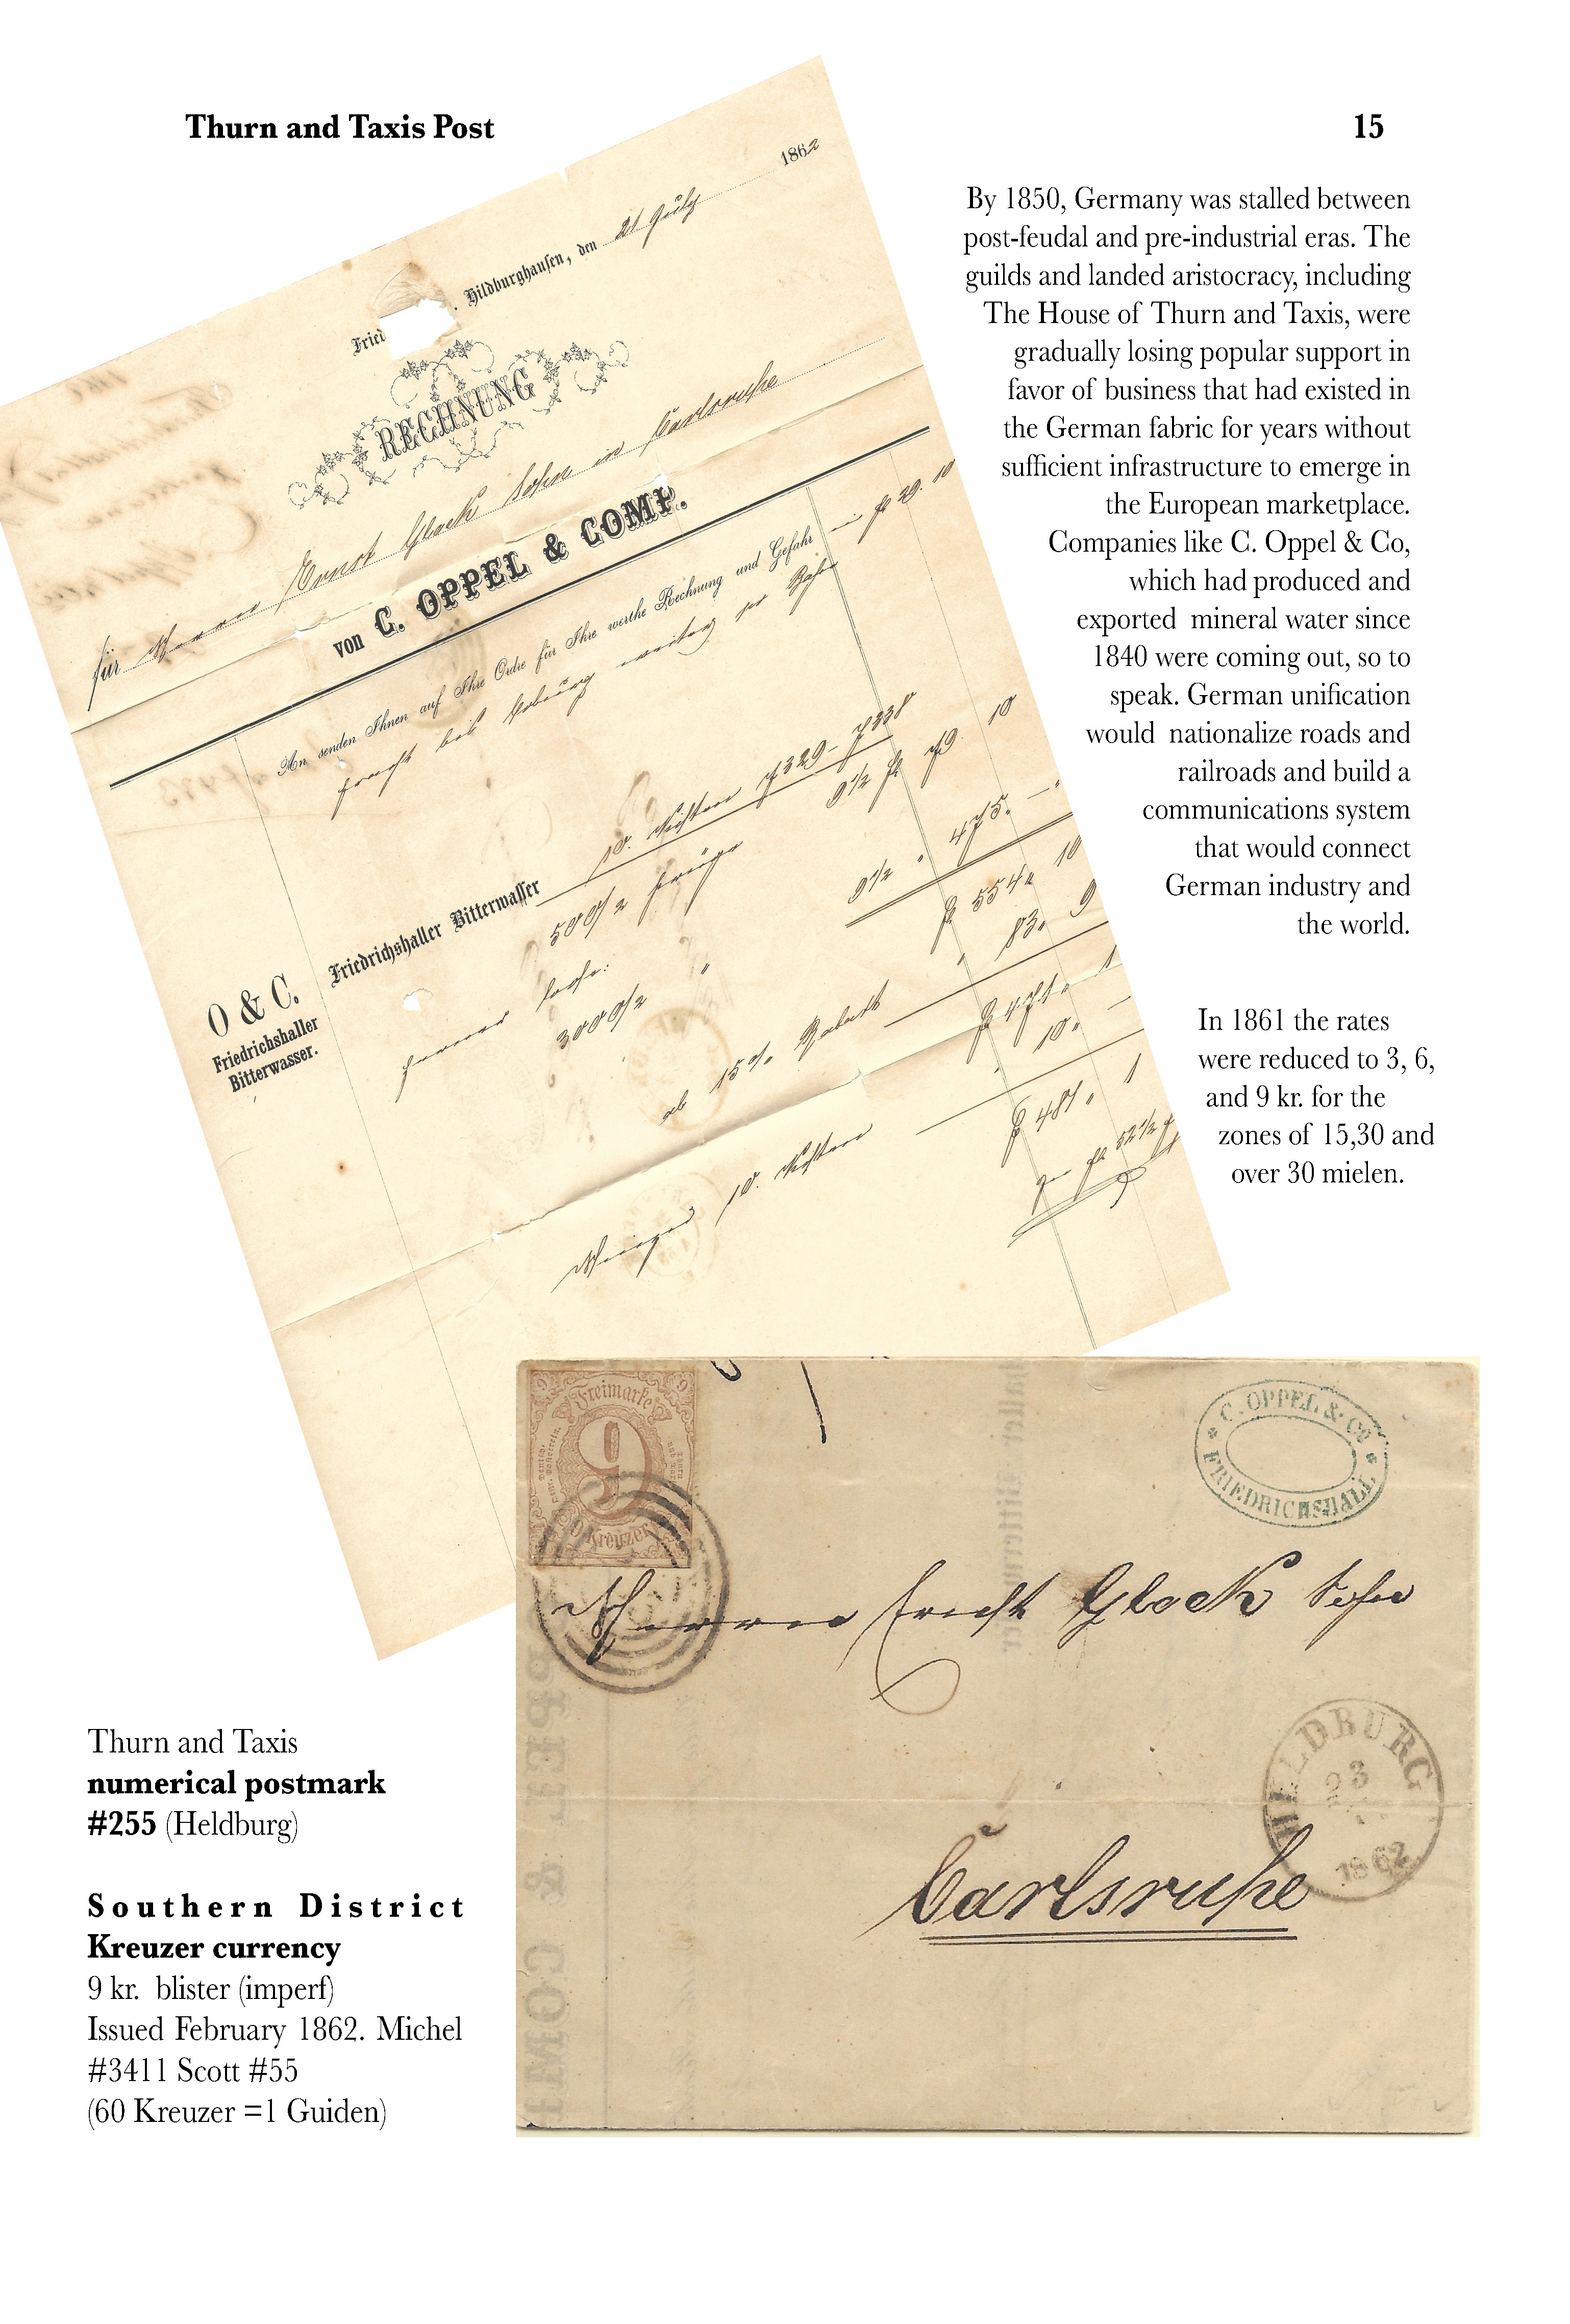 Thurn and Taxis Post
15
By 1850, Germany was stalled between
post-feudal and pre-industrial eras. The
guilds and landed aristocracy, including
The House of Thurn and Taxis, were
gradually losing popular support in
favor of business that had existed in
the German fabric for years without
sufficient infrastructure to emerge in
the European marketplace.
Companies like C. Oppel & Co,
which had produced and
exported mineral water since
1840 were coming out, so to
speak. German unification
would nationalize roads and
railroads and build a
communications system
that would connect
German industry and
the world.
In 1861 the rates
were reduced to 3, 6,
and 9 kr. for the
zones of 15,30 and
over 30 mielen.
Fried . Hildburghausen, den 21 July 1862
RECHNUNG
für Herrn Ernst Glock Sohn in Carlsruhe
von C. OPPEL & COMP.
An senden Ihnen auf Ihre Ordre für Ihre werthe Rechnung und Gefahr
fl 29. 10
10. Kisten 329- 338
O & C.
Friedrichshaller
Bitterwasser.
Friedrichshaller Bitterwasser
500/2 Krüge 9½ fl 79 10
3000/2 " 9½ " 475. —
fl 554 " 10
ab 15% Rabatt " 83 " 9
fl 471 " 1
10. Kisten " 10 " —
fl 481 " 1
Freimarke
9
9 Kreuzer
C. OPPEL & Co
FRIEDRICHSHALL
Herrn Ernst Glock Sohn
HELDBURG
23
1862
Carlsruhe
Thurn and Taxis
numerical postmark
#255 (Heldburg)
Southern District
Kreuzer currency
9 kr. blister (imperf)
Issued February 1862. Michel
#3411 Scott #55
(60 Kreuzer =1 Guiden)